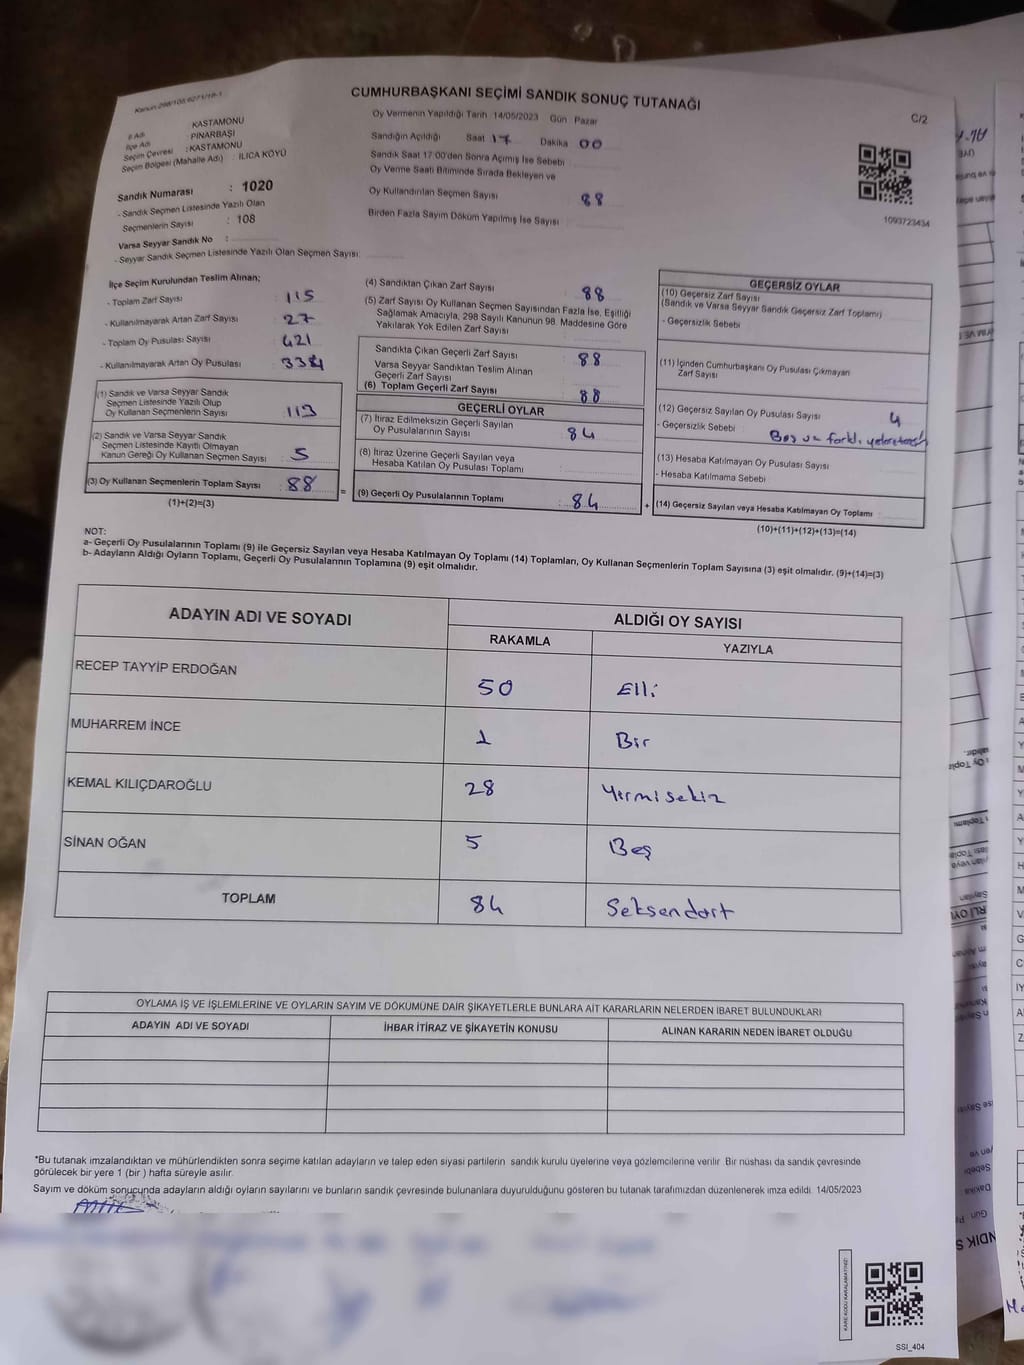 Kanun:298/105,6271/19-1
CUMHURBAŞKANI SEÇİMİ SANDIK SONUÇ TUTANAĞI
C/2
İl Adı : KASTAMONU
İlçe Adı : PINARBAŞI
Seçim Çevresi : KASTAMONU
Seçim Bölgesi (Mahalle Adı) : ILICA KÖYÜ
Sandık Numarası : 1020
- Sandık Seçmen Listesinde Yazılı Olan
Seçmenlerin Sayısı : 108
Varsa Seyyar Sandık No :
- Seyyar Sandık Seçmen Listesinde Yazılı Olan Seçmen Sayısı:
Oy Vermenin Yapıldığı Tarih 14/05/2023 Gün Pazar
Sandığın Açıldığı Saat 17 Dakika 00
Sandık Saat 17:00'den Sonra Açımış İse Sebebi
Oy Verme Saati Bitiminde Sırada Bekleyen ve
Oy Kullandırılan Seçmen Sayısı 88
Birden Fazla Sayım Döküm Yapılmış İse Sayısı
1093723434
İlçe Seçim Kurulundan Teslim Alınan;
- Toplam Zarf Sayısı : 115
- Kullanılmayarak Artan Zarf Sayısı : 27
- Toplam Oy Pusulası Sayısı : 421
- Kullanılmayarak Artan Oy Pusulası
(1) Sandık ve Varsa Seyyar Sandık
Seçmen Listesinde Yazılı Olup
Oy Kullanan Seçmenlerin Sayısı : 113
(2) Sandık ve Varsa Seyyar Sandık
Seçmen Listesinde Kayıtlı Olmayan
Kanun Gereği Oy Kullanan Seçmen Sayısı : 5
(3) Oy Kullanan Seçmenlerin Toplam Sayısı : 88
(1)+(2)=(3)
(4) Sandıktan Çıkan Zarf Sayısı : 88
(5) Zarf Sayısı Oy Kullanan Seçmen Sayısından Fazla İse, Eşitliği
Sağlamak Amacıyla, 298 Sayılı Kanunun 98. Maddesine Göre
Yakılarak Yok Edilen Zarf Sayısı
Sandıkta Çıkan Geçerli Zarf Sayısı : 88
Varsa Seyyar Sandıktan Teslim Alınan
Geçerli Zarf Sayısı
(6) Toplam Geçerli Zarf Sayısı : 88
=
GEÇERLİ OYLAR
(7) İtiraz Edilmeksizin Geçerli Sayılan
Oy Pusulalarının Sayısı : 84
(8) İtiraz Üzerine Geçerli Sayılan veya
Hesaba Katılan Oy Pusulası Toplamı :
(9) Geçerli Oy Pusulalarının Toplamı : 84
+
GEÇERSİZ OYLAR
(10) Geçersiz Zarf Sayısı
(Sandık ve Varsa Seyyar Sandık Geçersiz Zarf Toplamı)
- Geçersizlik Sebebi :
(11) İçinden Cumhurbaşkanı Oy Pusulası Çıkmayan
Zarf Sayısı
(12) Geçersiz Sayılan Oy Pusulası Sayısı : 4
- Geçersizlik Sebebi : Boş ve farklı
(13) Hesaba Katılmayan Oy Pusulası Sayısı :
- Hesaba Katılmama Sebebi :
(14) Geçersiz Sayılan veya Hesaba Katılmayan Oy Toplamı :
(10)+(11)+(12)+(13)=(14)
NOT:
a- Geçerli Oy Pusulalarının Toplamı (9) ile Geçersiz Sayılan veya Hesaba Katılmayan Oy Toplamı (14) Toplamları, Oy Kullanan Seçmenlerin Toplam Sayısına (3) eşit olmalıdır. (9)+(14)=(3)
b- Adayların Aldığı Oyların Toplamı, Geçerli Oy Pusulalarının Toplamına (9) eşit olmalıdır.
ADAYIN ADI VE SOYADI
ALDIĞI OY SAYISI
RAKAMLA YAZIYLA
RECEP TAYYİP ERDOĞAN 50 Elli
MUHARREM İNCE 1 Bir
KEMAL KILIÇDAROĞLU 28 Yirmisekiz
SİNAN OĞAN 5 Beş
TOPLAM 84 Seksendört
OYLAMA İŞ VE İŞLEMLERİNE VE OYLARIN SAYIM VE DÖKÜMÜNE DAİR ŞİKAYETLERLE BUNLARA AİT KARARLARIN NELERDEN İBARET BULUNDUKLARI
ADAYIN ADI VE SOYADI İHBAR İTİRAZ VE ŞİKAYETİN KONUSU ALINAN KARARIN NEDEN İBARET OLDUĞU
*Bu tutanak imzalandıktan ve mühürlendikten sonra seçime katılan adayların ve talep eden siyasi partilerin sandık kurulu üyelerine veya gözlemcilerine verilir. Bir nüshası da sandık çevresinde
görülecek bir yere 1 (bir ) hafta süreyle asılır.
Sayım ve döküm sonucunda adayların aldığı oyların sayılarını ve bunların sandık çevresinde bulunanlara duyurulduğunu gösteren bu tutanak tarafımızdan düzenlenerek imza edildi. 14/05/2023
KARE KODU KARALAMAYINIZ!
SSI_404